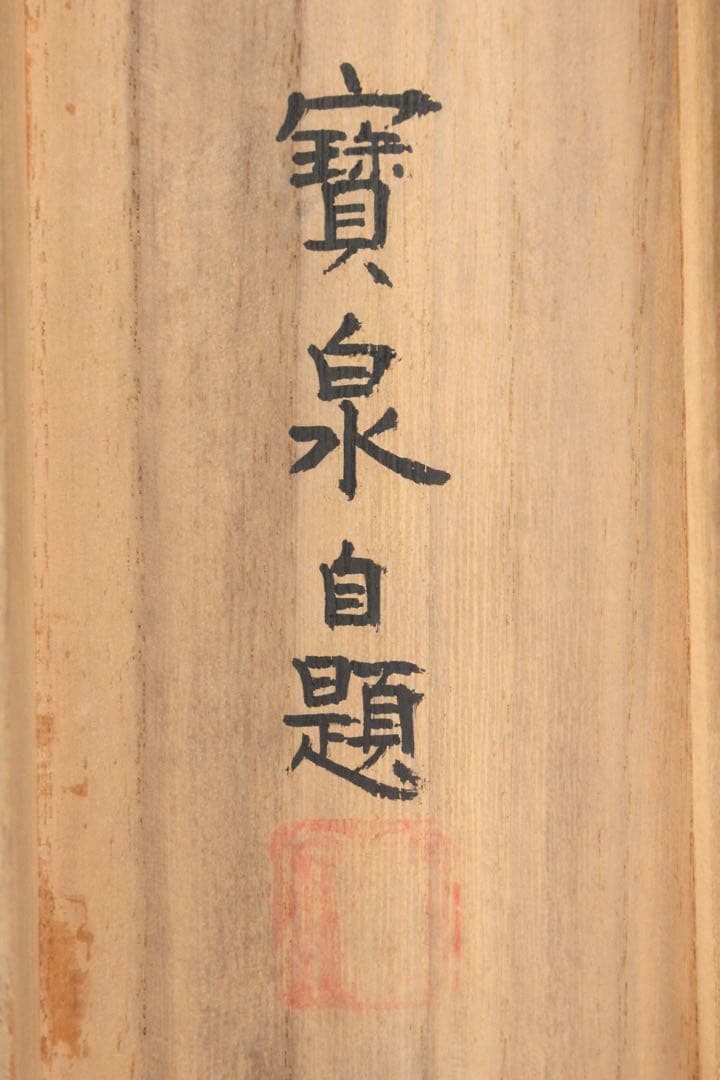 寶泉自題